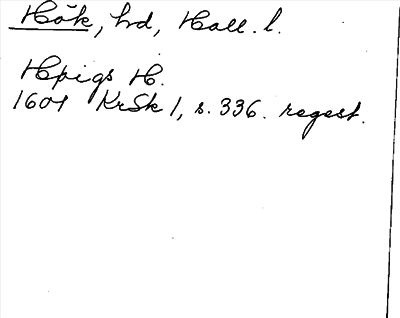 Hök, hd, Hall. l.
Hpigs H.
1601 KrSk 1, s. 336. regest.